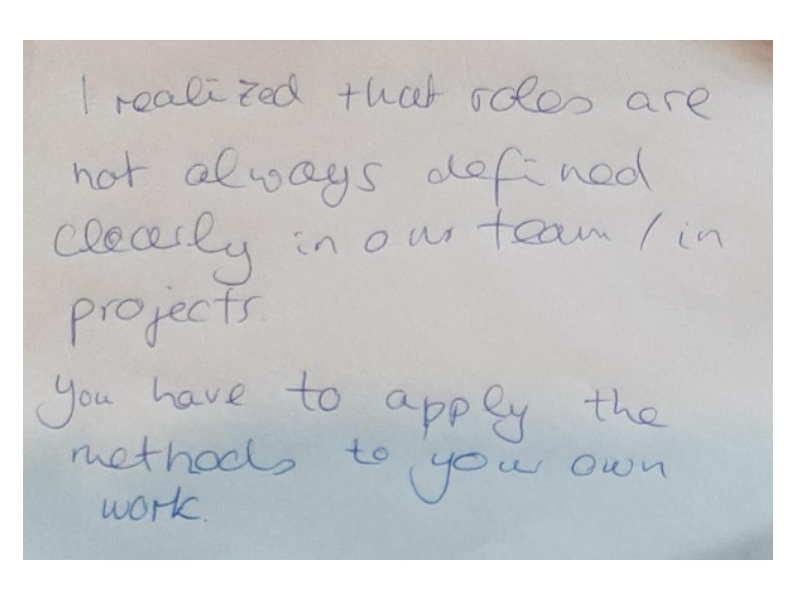 I realized that roles are
not always defined
clearly in our team / in
projects.
You have to apply the
methods to your own
work.